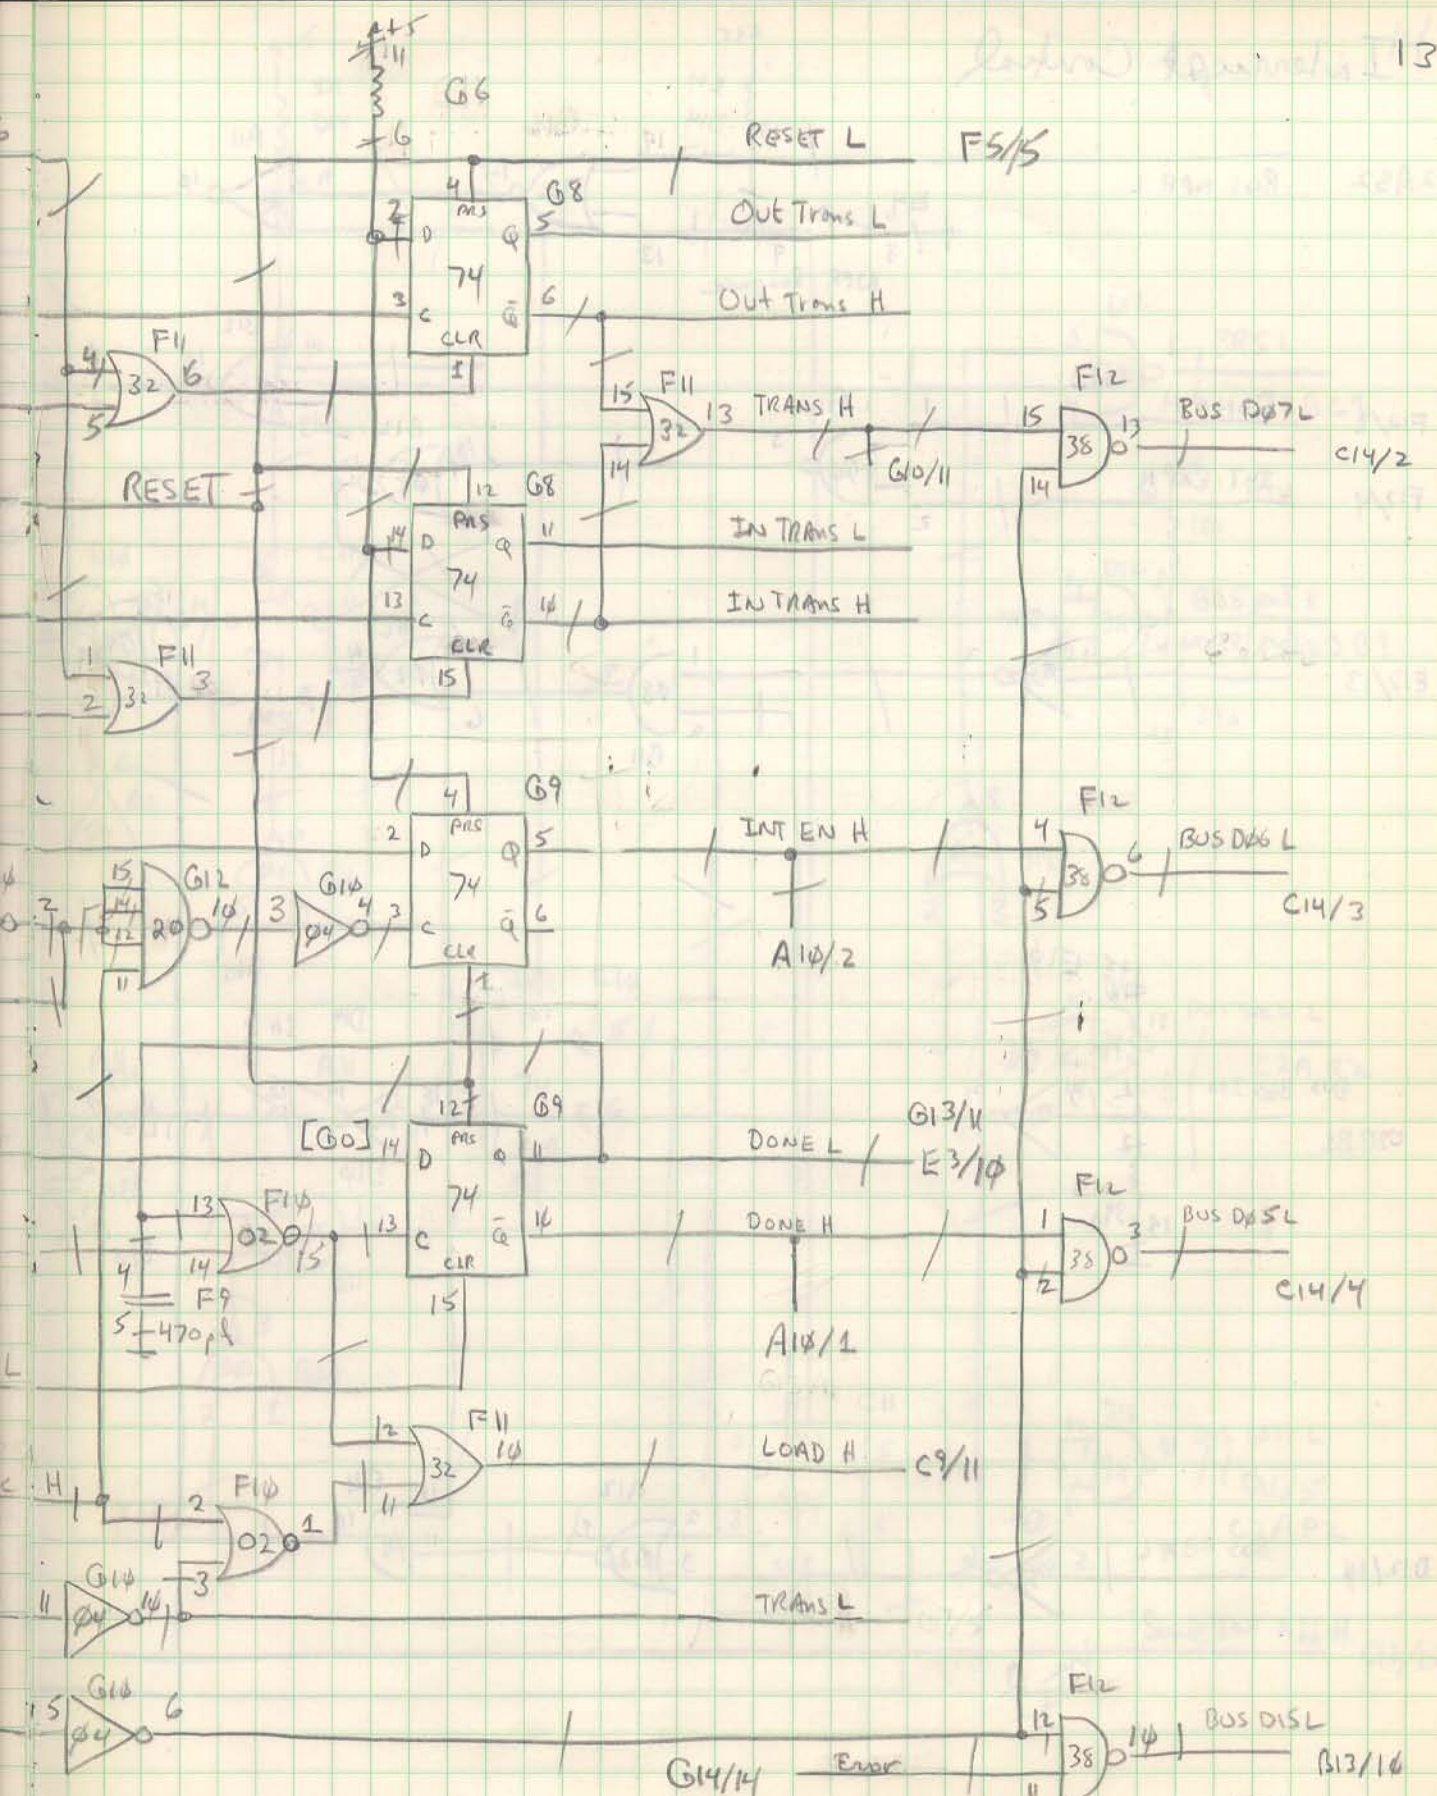 13
+5
11
G6
6
RESET L F5/15
4 PRS G8
2 D Q 5 Out Trans L
74
3 C Q̄ 6 Out Trans H
CLR
1
F11
4 32 6
5
15 F11
32 13 TRANS H
14
G10/11
F12
15 38 13 BUS DØ7L
14
C14/2
RESET
12 G8
PRS
14 D Q 11 IN TRANS L
74
13 C Q̄ 1Ø IN TRANS H
CLR
15
F11
1
2 32 3
4 G9
PRS
2 D Q 5 INT EN H
74
3 C Q̄ 6
CLR
1
A1Ø/2
F12
4 38 6 BUS DØ6 L
5
C14/3
2
15 G12
14
12 20 1Ø
11
G1Ø
3 Ø4 4
12 G9
PRS
[GO] 14 D Q 11 DONE L
G13/11
E3/1Ø
74
13 C Q̄ 1Ø DONE H
CLR
15
A1Ø/1
F12
1 38 3 BUS DØ5L
2
C14/4
13 F1Ø
02 15
14
4 F9
5 470pf
L
12 F11
32 1Ø LOAD H C9/11
11
H
2 F1Ø
02 1
3
G1Ø
11 Ø4 1Ø TRANS L
G1Ø
5 Ø4 6
F12
12 38 1Ø BUS D15L
11
G14/14 Error
B13/1Ø